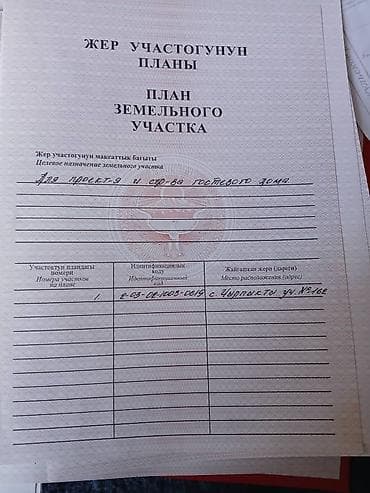 ЖЕР УЧАСТОГУНУН
ПЛАНЫ
ПЛАН
ЗЕМЕЛЬНОГО
УЧАСТКА
Жер участогунун максаттык багыты
Целевое назначение земельного участка
Для проект-я и стр-ва гостевого дома.
Участоктун пландагы номери
Номера участков на плане
Идентификациялык коду
Идентификационный код
Жайгашкан жери (дареги)
Место расположения (адрес)
1 2-03-02-1003-0619 с. Чырпыкты уч. №162